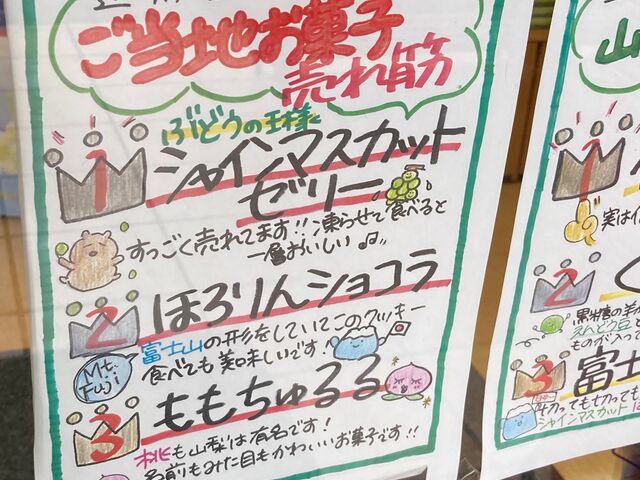 ご当地お菓子
売れ筋
ぶどうの王様
1
シャインマスカット
ゼリー
すっごく売れてます!!凍らせて食べると
一層おいしい♫
2
ほろりんショコラ
富士山の形をしていてこのクッキー
食べても美味しいです!
Mt.
Fuji
3
ももちゅるる
桃も山梨は有名です!
名前もみた目もかわいいお菓子です!!
山
1
実は
2
く
黒糖の
えんどう豆
ものが入っ
3
富士
切っても切っても
シャインマスカット